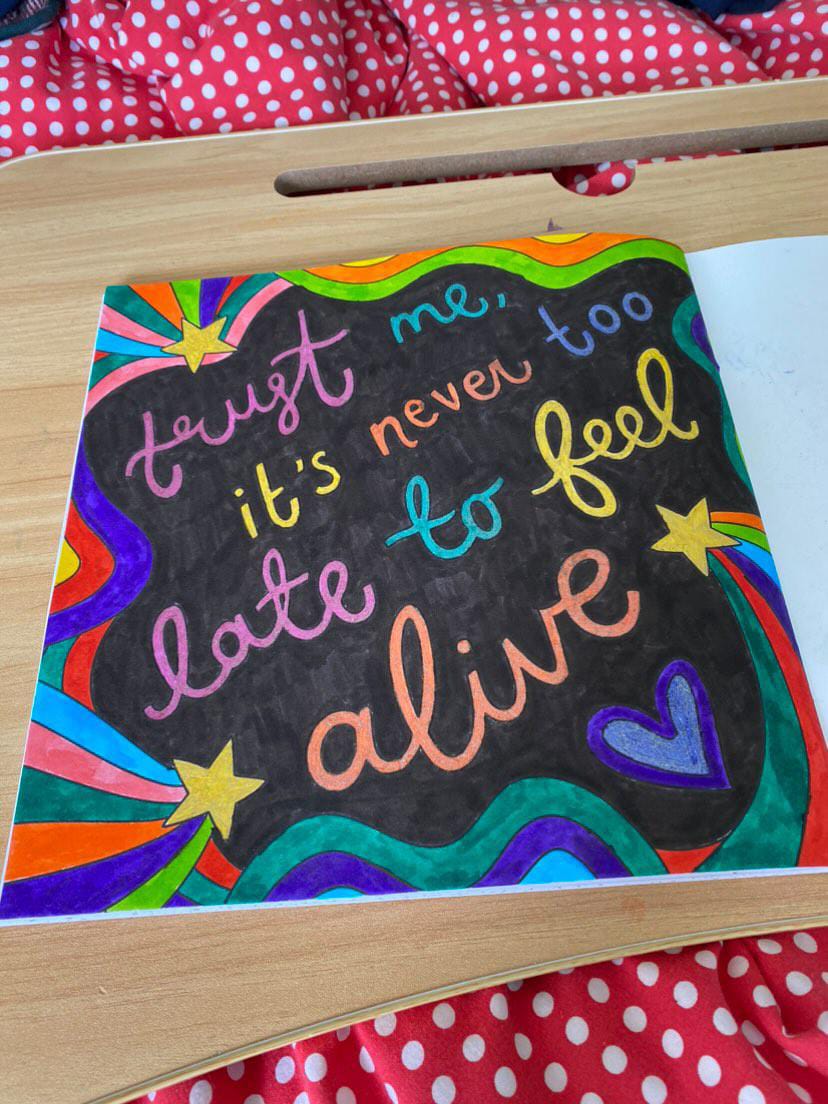 trust me,
it's never too
late to feel
alive